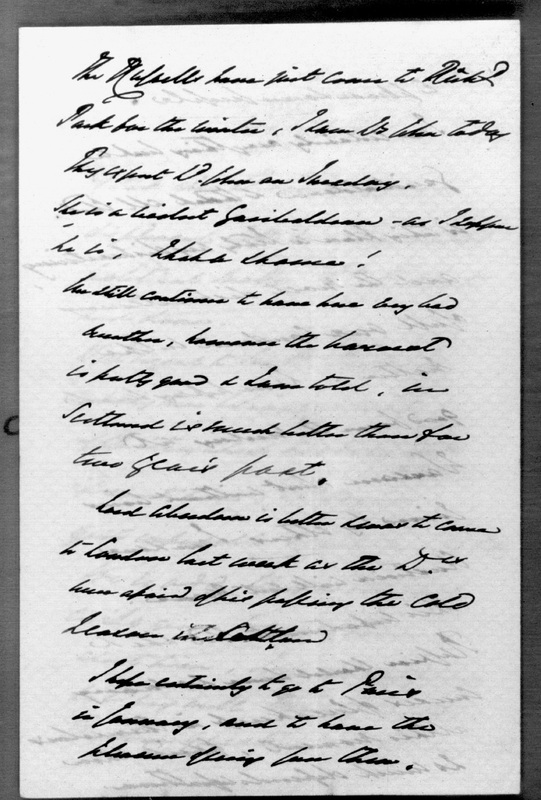 The Russells have just come to Rich.d
Park for the winter, I saw Ld John today
They expect Ld. John on Tuesday.
He is a violent Garibaldian - as I suppose
he is, what a shame!
We still continue to have here very bad
weather, however the harvest
is pretty good & I am told, in
Scotland is much better than for
two years past.
Lord Aberdeen is better & was to come
to London last week as the D.rs
were afraid of his passing the cold
Season in Scotland
I hope certainly to go to Paris
in January, and to have the
pleasure of seeing you then.